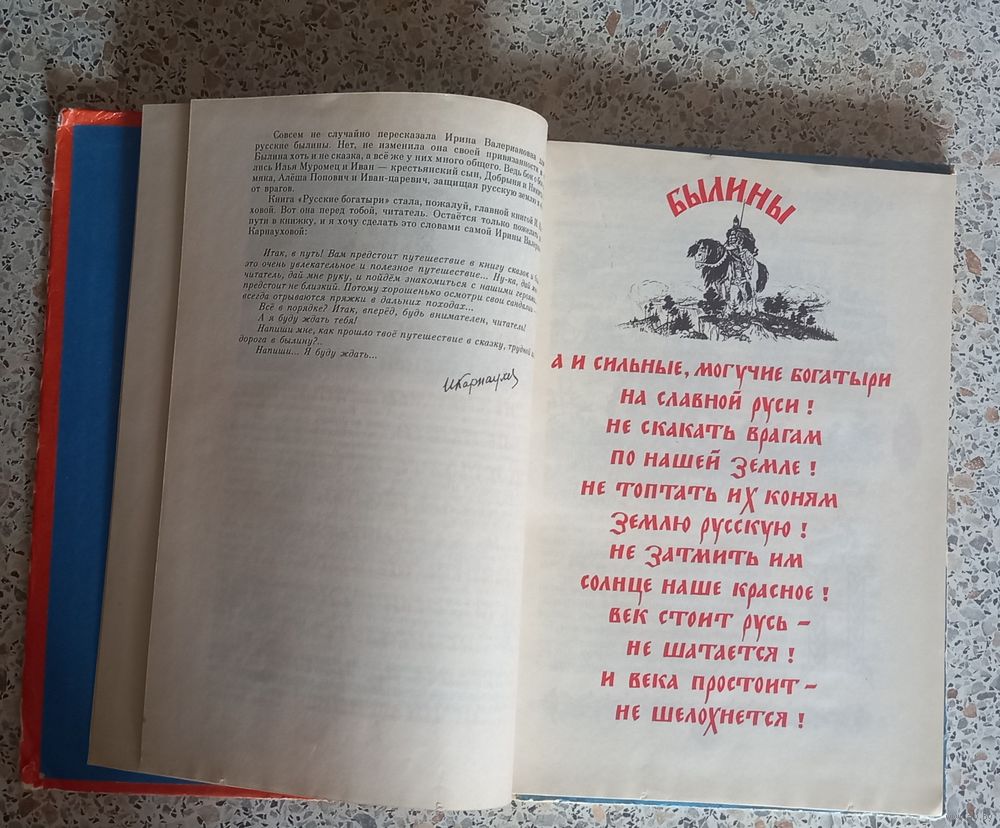 Совсем не случайно пересказала Ирина Валериановна
русские былины. Нет, не изменила она своей привязанности
Былина хоть и не сказка, а всё же у них много общего. Ведь
лись Илья Муромец и Иван — крестьянский сын, Добрыня и
мяка, Алёша Попович и Иван-царевич, защищая русскую землю
от врагов.
Книга «Русские богатыри» стала, пожалуй, главной книгой И.
ховой. Вот она перед тобой, читатель. Остаётся только пожелать
пути в книжку, и я хочу сделать это словами самой Ирины
Карнауховой:
Итак, в путь! Вам предстоит путешествие в книгу сказок и
это очень увлекательное и полезное путешествие... Ну-ка, дай
читатель, дай мне руку, и пойдём знакомиться с нашими
предстоит не близкий. Потому хорошенько осмотри свои
всегда отрываются пряжки в дальних походах...
Всё в порядке? Итак, вперёд, будь внимателен, читатель!
А я буду ждать тебя!
Напиши мне, как прошло твоё путешествие в сказку, трудной
дорога в былину?..
Напиши... Я буду ждать...
ИКарнаухов
БЫЛИНЫ
А И СИЛЬНЫЕ, МОГУЧИЕ БОГАТЫРИ
НА СЛАВНОЙ РУСИ!
НЕ СКАКАТЬ ВРАГАМ
ПО НАШЕЙ ЗЕМЛЕ!
НЕ ТОПТАТЬ ИХ КОНЯМ
ЗЕМЛЮ РУССКУЮ!
НЕ ЗАТМИТЬ ИМ
СОЛНЦЕ НАШЕ КРАСНОЕ!
ВЕК СТОИТ РУСЬ —
НЕ ШАТАЕТСЯ!
И ВЕКА ПРОСТОИТ —
НЕ ШЕЛОХНЕТСЯ!